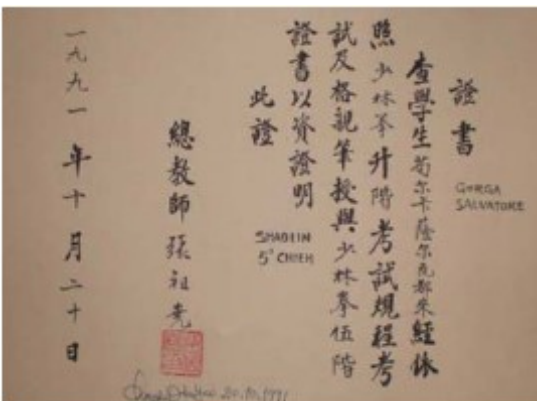 證書
GORGA
SALVATORE
查學生荀尔卡薩尔瓦都朱經依
照少林拳升階考試規程考
試及格親筆授與少林拳伍階
SHAOLIN
5° CHIEH
證書以資證明
此證
總教師張祖堯
一九九一年十月二十日
20.10.1991